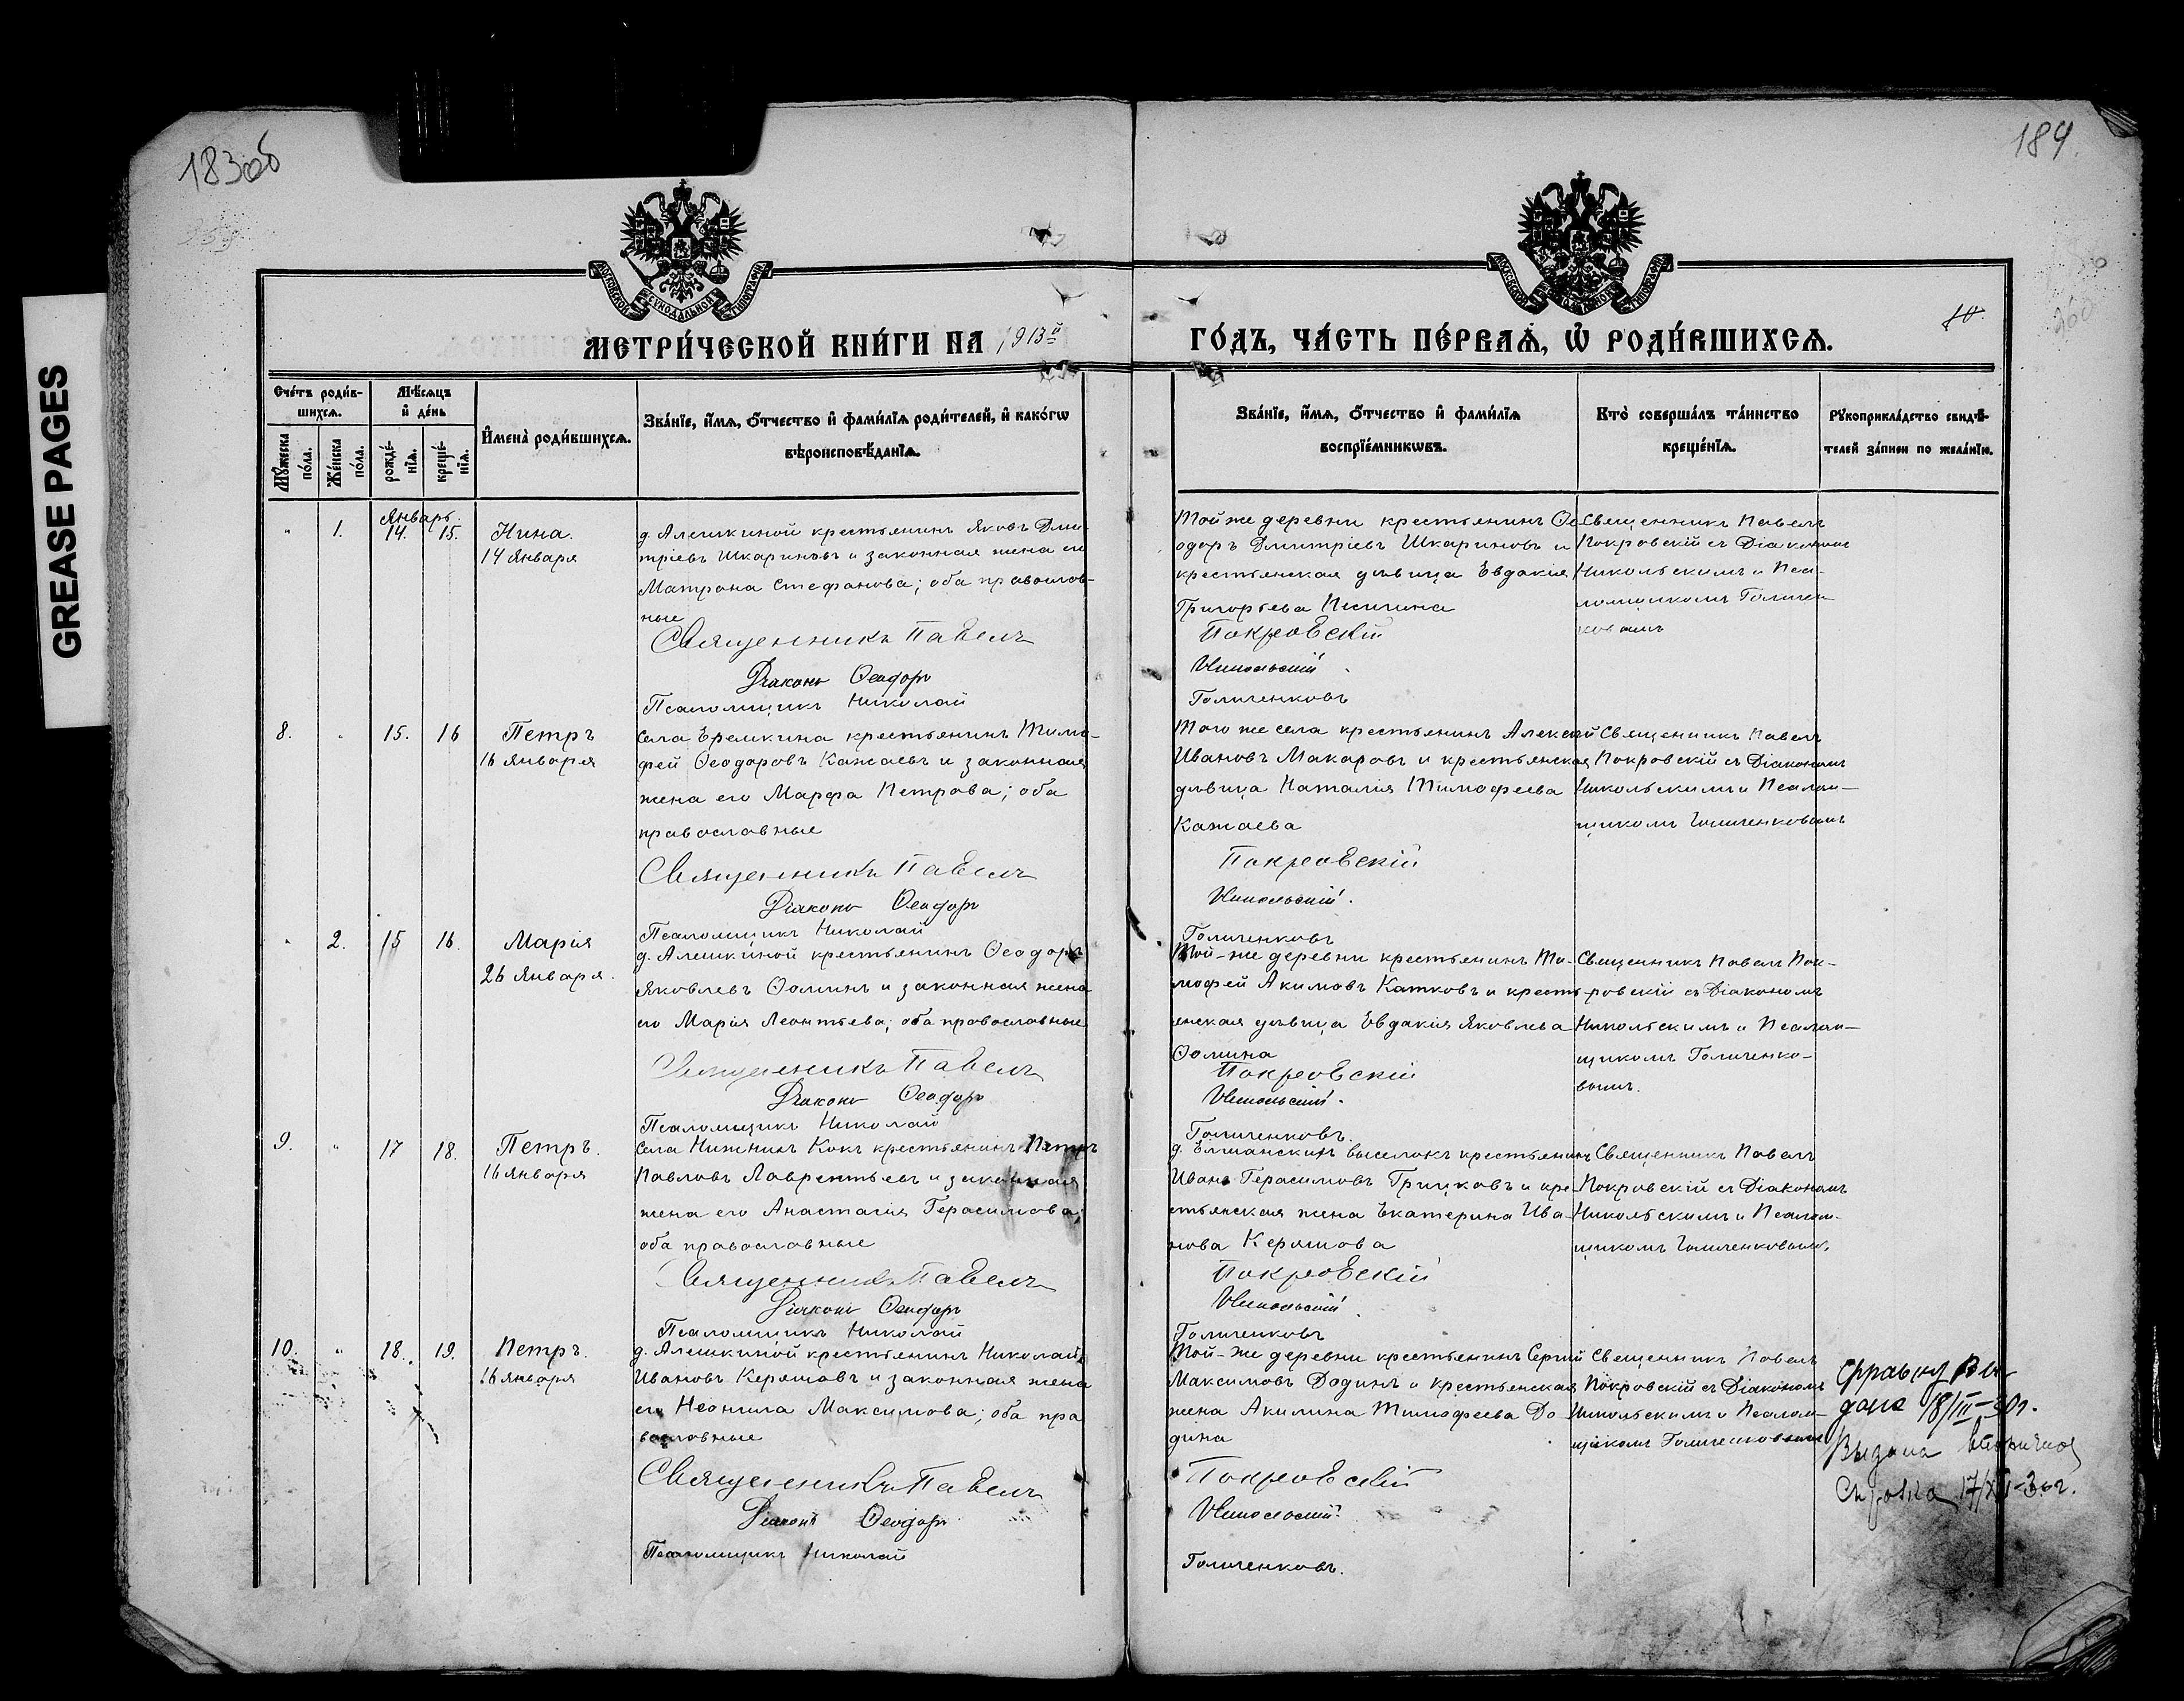 183 об
184.
GREASE PAGES
МОСКОВСКОЙ СѴНОДАЛЬНОЙ ТИПОГРАФІИ
МОСКОВСКОЙ СѴНОДАЛЬНОЙ ТИПОГРАФІИ
10.
260
МЕТРИ́ЧЕСКОЙ КНИ́ГИ НА 1913й
ГО́ДЪ, ЧА́СТЬ ПЕ́РВАѦ, Ѡ҆ РОДИ́ВШИХСѦ.
Сче́тъ роди́в-
шихсѧ.
Мꙋ́жеска по́ла.
Же́нска по́ла.
Мѣ́сѧцъ
и҆ де́нь
рожде́-нїѧ.
креще́-нїѧ.
И҆мена̀ роди́вшихсѧ.
Зва́нїе, и҆́мѧ, о҆́тчество и҆ фами́лїѧ роди́телей, и҆ како́гѡ
вѣроисповѣ́данїѧ.
Зва́нїе, и҆́мѧ, о҆́тчество и҆ фами́лїѧ
воспрїе́мникѡвъ.
Кто̀ соверша́лъ та́инство
креще́нїѧ.
Рꙋкоприкла́дство свидѣ́-
телей за́писи по жела́нїю.
Январь.
1. 14. 15. Нина.
14 Января
д. Алешкиной крестьянинъ Яковъ Дми-
тріевъ Шкариновъ и законная жена его
Матрона Стефанова; оба православ-
ные
Священникъ Павелъ
Діаконъ Ѳеодоръ
Псаломщикъ Николай
Той же деревни крестьянинъ Ѳе-
одоръ Дмитріевъ Шкариновъ и
крестьянская дѣвица Евдокія
Григорьева
Покровскій
Никольскій
Голиченковъ
Священникъ Павелъ
Покровскій съ Діакономъ
Никольскимъ и Пса-
ломщикомъ Голичен-
ковымъ
8. 15. 16 Петръ
16 Января
Села Еремкина крестьянинъ Тимо-
фей Ѳеодоровъ Кажаевъ и законная
жена его Марѳа Петрова; оба
православные
Священникъ Павелъ
Діаконъ Ѳеодоръ
Псаломщикъ Николай
Того же села крестьянинъ Алексѣй
Ивановъ Макаровъ и крестьянская
дѣвица Наталія Тимофеева
Кажаева
Покровскій
Никольскій.
Голиченковъ
Священникъ Павелъ
Покровскій съ Діакономъ
Никольскимъ и Псалом-
щикомъ Голиченковымъ
2. 15 16. Марія
26 Января.
д. Алешкиной крестьянинъ Ѳеодоръ
Яковлевъ Ѳоминъ и законная жена
его Марія Леонтьева; оба православные
Священникъ Павелъ
Діаконъ Ѳеодоръ
Псаломщикъ Николай
Той-же деревни крестьянинъ Ти-
мофей Акимовъ Катковъ и кресть-
янская дѣвица Евдокія Яковлева
Ѳомина
Покровскій
Никольскій.
Голиченковъ.
Священникъ Павелъ Пок-
ровскій съ Діакономъ
Никольскимъ и Псалом-
щикомъ Голиченко-
вымъ.
9. 17 18. Петръ.
16 Января
Села Нижнихъ Кокъ крестьянинъ Петръ
Павловъ Лаврентьевъ и законная
жена его Анастасія Герасимова;
оба православные
Священникъ Павелъ
Діаконъ Ѳеодоръ
Псаломщикъ Николай
д. Елшанскихъ выселокъ крестьянинъ
Иванъ Герасимовъ Грицковъ и кре-
стьянская жена Екатерина Ива-
нова Керяшова
Покровскій
Никольскій.
Голиченковъ
Священникъ Павелъ
Покровскій съ Діакономъ
Никольскимъ и Псалом-
щикомъ Голиченковымъ.
10. 18. 19. Петръ.
16 Января
д. Алешкиной крестьянинъ Николай
Ивановъ Керяшовъ и законная жена
его Неонила Максимова; оба пра
вославные
Священникъ Павелъ
Діаконъ Ѳеодоръ
Псаломщикъ Николай
Той-же деревни крестьянинъ Сергій
Максимовъ Додинъ и крестьянская
жена Акилина Тимофеева До-
дина
Покровскій
Никольскій
Голиченковъ.
Священникъ Павелъ
Покровскій съ Діакономъ
Никольскимъ и Псалом-
щикомъ Голиченковымъ
Справку вы-
дана 18/III-30г.
Выдана вторичная
Справка